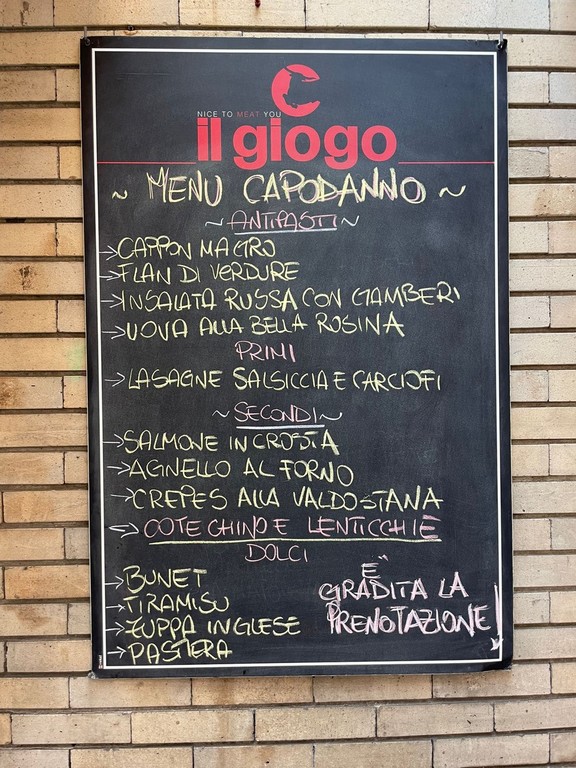 NICE TO MEAT YOU
il giogo
~ MENU CAPODANNO ~
~ ANTIPASTI ~
→ CAPPON MAGRO
→ FLAN DI VERDURE
→ INSALATA RUSSA CON GAMBERI
→ UOVA ALLA BELLA ROSINA
PRIMI
→ LASAGNE SALSICCIA E CARCIOFI
~ SECONDI ~
→ SALMONE IN CROSTA
→ AGNELLO AL FORNO
→ CREPES ALLA VALDOSTANA
→ COTECHINO E LENTICCHIE
DOLCI
→ BUNET
→ TIRAMISU
→ ZUPPA INGLESE
→ PASTIERA
E'
GRADITA LA
PRENOTAZIONE